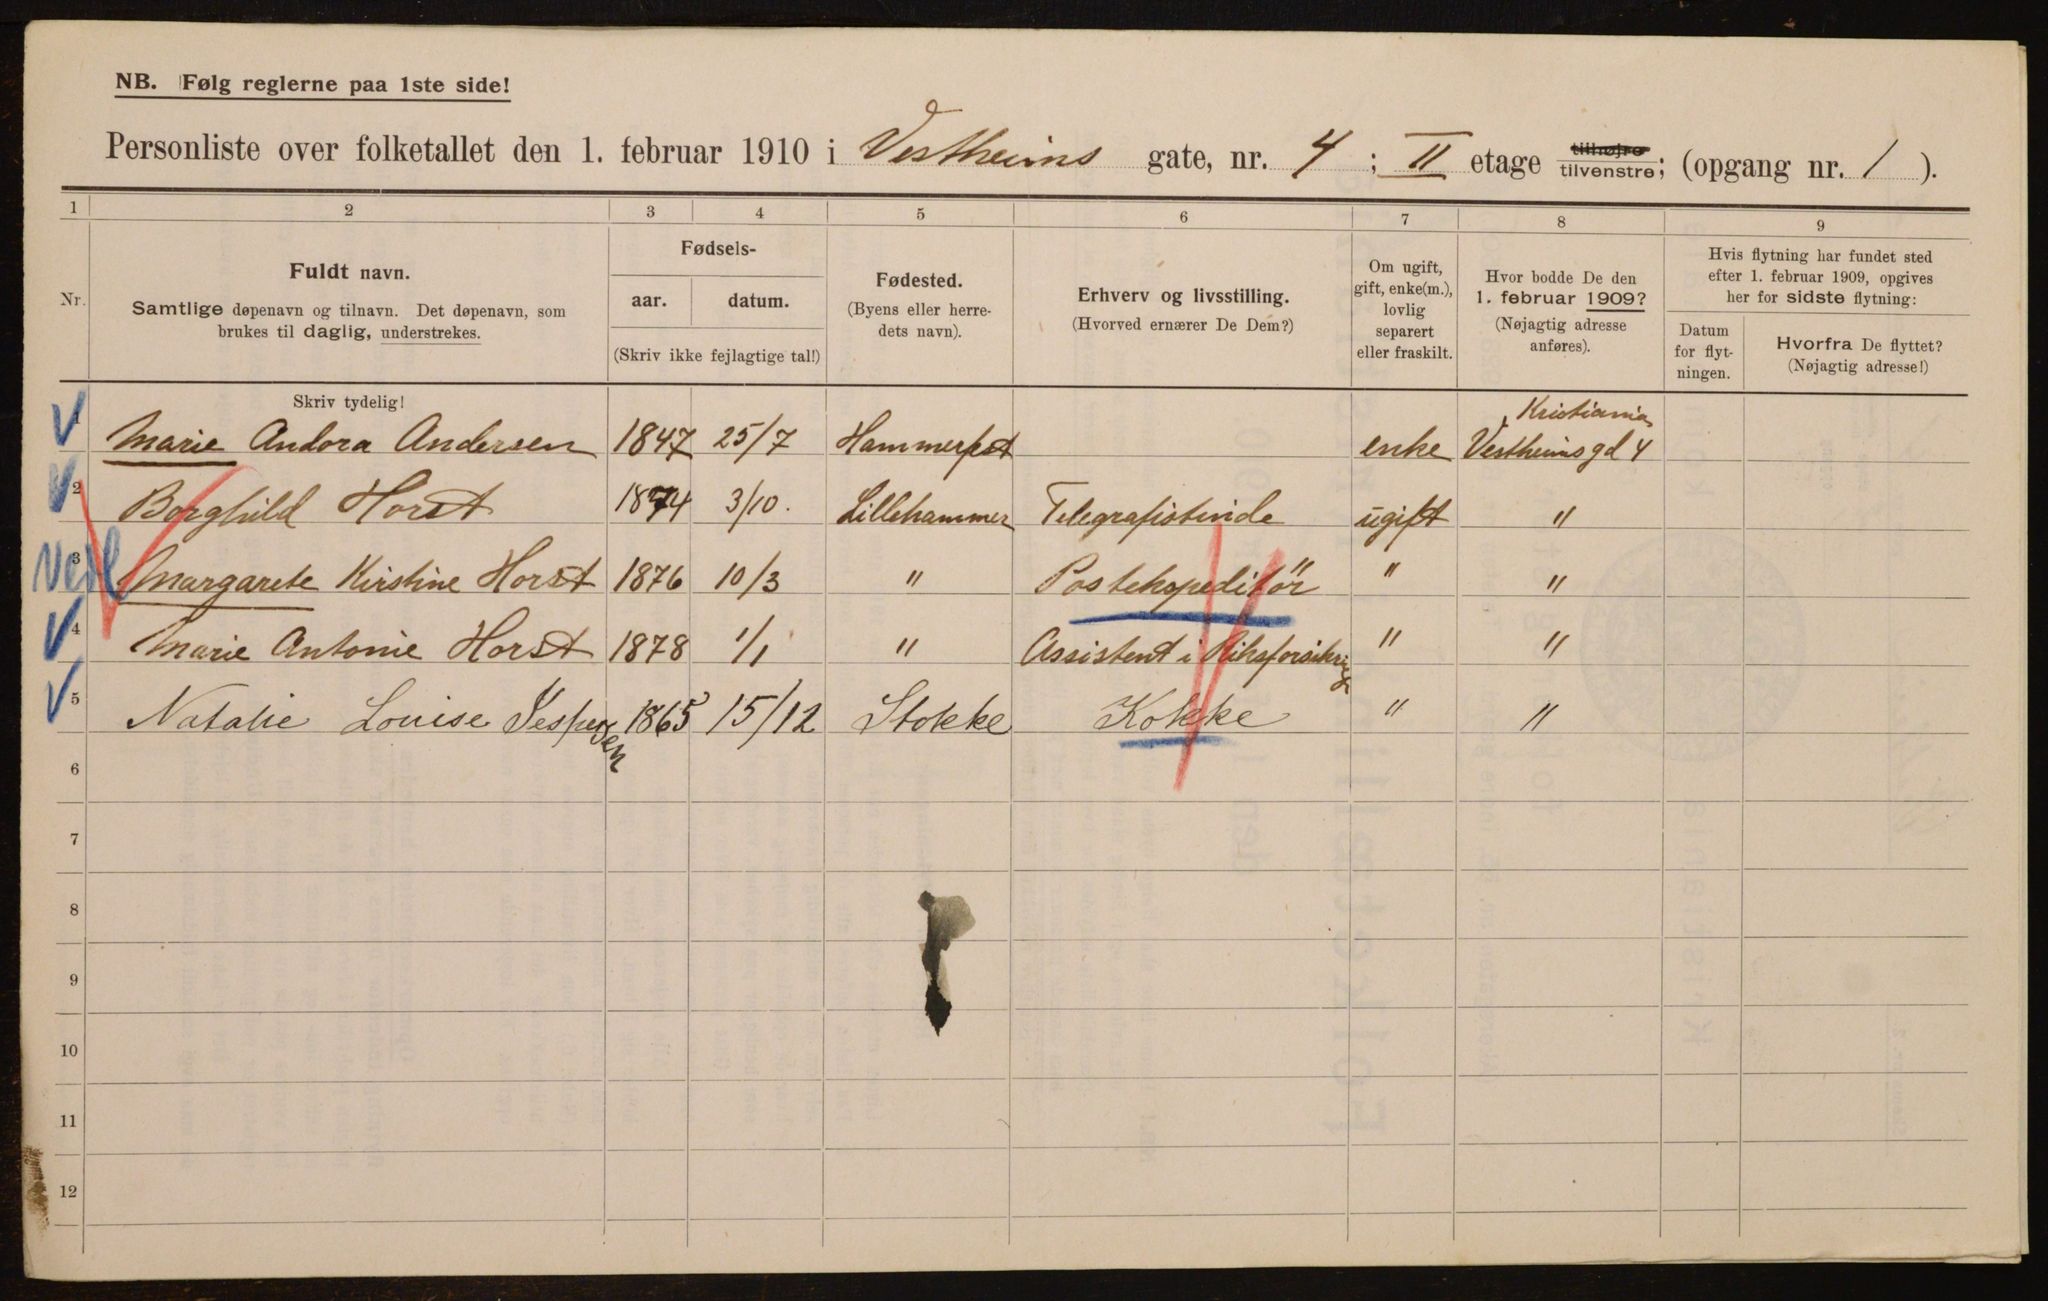 NB. Følg reglerne paa 1ste side!
Personliste over folketallet den 1. februar 1910 i Vestheims gate, nr. 4 ; II etage tilhøjre tilvenstre; (opgang nr. 1 ).
1 2 3 4 5 6 7 8 9
Nr.
Fuldt navn.
Samtlige døpenavn og tilnavn. Det døpenavn, som
brukes til daglig, understrekes.
Fødsels-
aar. datum.
(Skriv ikke fejlagtige tal!)
Fødested.
(Byens eller herre-
dets navn).
Erhverv og livsstilling.
(Hvorved ernærer De Dem?)
Om ugift,
gift, enke(m.),
lovlig
separert
eller fraskilt.
Hvor bodde De den
1. februar 1909?
(Nøjagtig adresse
anføres).
Hvis flytning har fundet sted
efter 1. februar 1909, opgives
her for sidste flytning:
Datum
for flyt-
ningen.
Hvorfra De flyttet?
(Nøjagtig adresse!)
Skriv tydelig!
Kristiania
1 Marie Andora Andersen 1847 25/7 Hammerfest enke Vestheimsgd 4
2 Borghild Horst 1874 3/10. Lillehammer Telegrafistinde ugift "
3 Margarete Kirstine Horst 1876 10/3 " Postekspeditör " "
4 Marie Antonie Horst 1878 1/1 " Assistent i Riksforsikring " "
5 Natalie Louise Jespersen 1865 15/12 Stokke Kokke " "
6
7
8
9
10
11
12